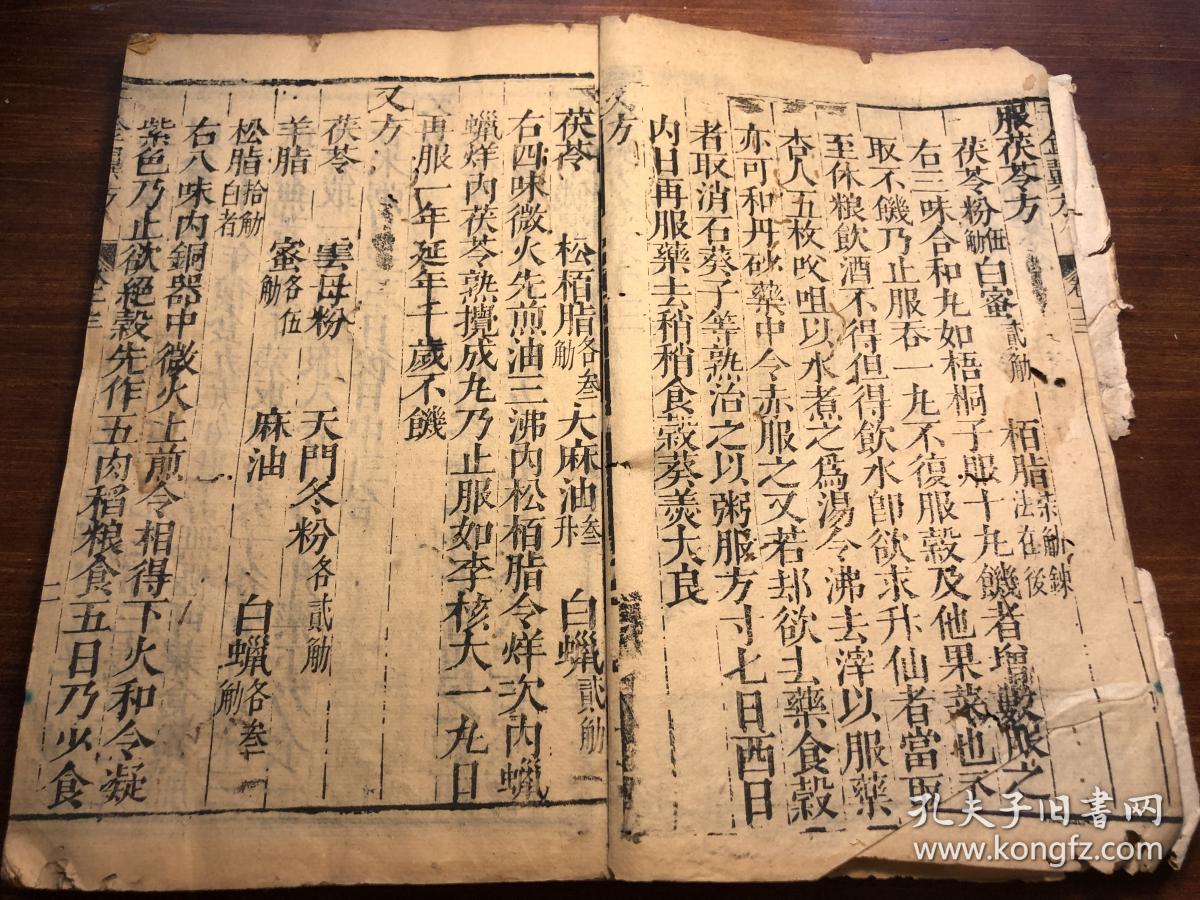 千金翼方 卷十三
服茯苓方
茯苓粉伍觔 白蜜貳觔 栢脂柒觔鍊法在後
右三味合和丸如梧桐子服十丸饑者增數服之
取不饑乃止服吞一丸不復服穀及他果菜也不
至休粮飲酒不得但得飲水即欲求升仙者當取
杏人五枚㕮咀以水煮之爲湯令沸去滓以服藥
亦可和丹砂藥中令赤服之又若却欲去藥食穀
者取消石葵子等熟治之以粥服方寸匕日一四日
内日再服藥去稍稍食穀葵羮大良
又方
茯苓 松栢脂各叁觔 大麻油叁升 白蠟貳觔
右四味微火先煎油三沸内松栢脂令烊次内蠟
蠟烊内茯苓熟攪成丸乃止服如李核大一丸日
再服一年延年千歲不饑
又方
茯苓 雲母粉 天門冬粉各貳觔
羊脂 蜜各伍觔 麻油
松脂拾觔白者 白蠟各叁觔
右八味内銅器中微火上煎令相得下火和令凝
紫色乃止欲絶穀先作五肉稻粮食五日乃少食
孔夫子旧书网
www.kongfz.com